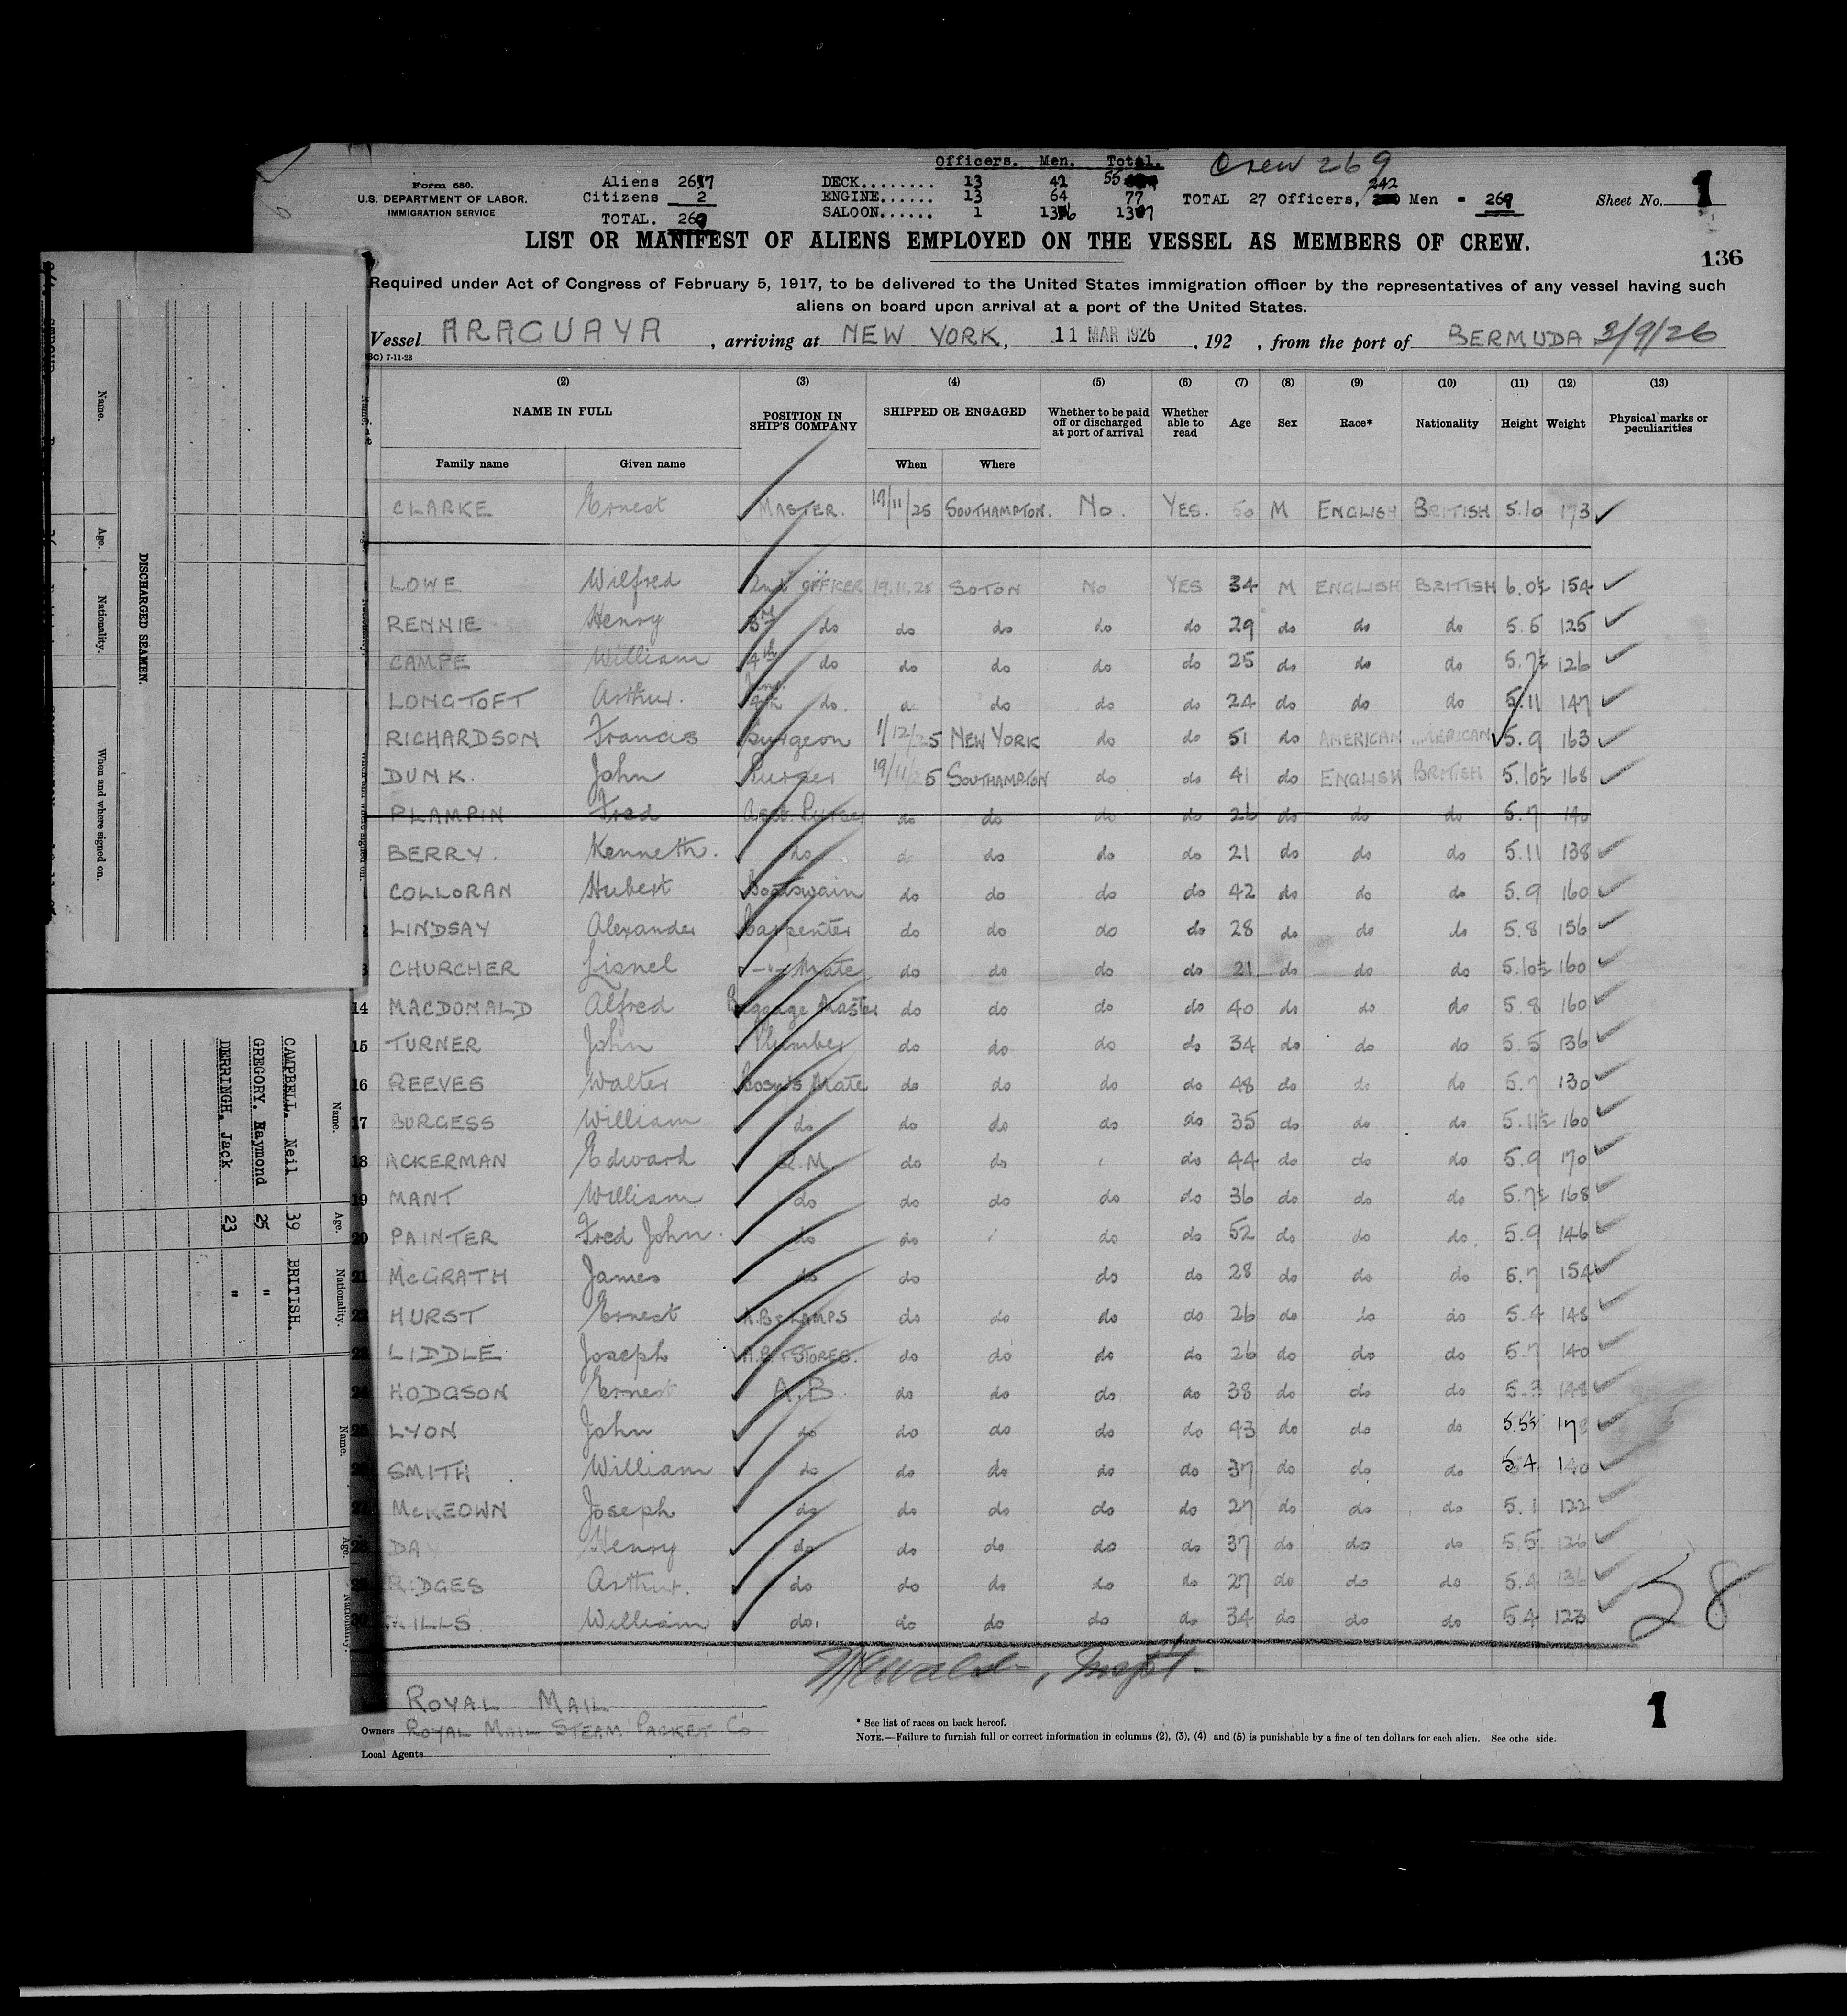 Officers. Men. Total. Crew 269
Form 680. Aliens 267 DECK........ 13 42 55
U.S. DEPARTMENT OF LABOR. Citizens 2 ENGINE...... 13 64 77 TOTAL 27 Officers, 242 Men = 269 Sheet No. 1
IMMIGRATION SERVICE TOTAL. 269 SALOON...... 1 136 137
LIST OR MANIFEST OF ALIENS EMPLOYED ON THE VESSEL AS MEMBERS OF CREW.
136
Required under Act of Congress of February 5, 1917, to be delivered to the United States immigration officer by the representatives of any vessel having such
aliens on board upon arrival at a port of the United States.
Vessel ARAGUAYA, arriving at NEW YORK, 11 MAR 1926, 192 , from the port of BERMUDA 3/9/26
(2) (3) (4) (5) (6) (7) (8) (9) (10) (11) (12) (13)
NAME IN FULL POSITION IN SHIP'S COMPANY SHIPPED OR ENGAGED Whether to be paid off or discharged at port of arrival Whether able to read Age Sex Race* Nationality Height Weight Physical marks or peculiarities
Family name Given name When Where
CLARKE Ernest MASTER. 19/11/25 SOUTHAMPTON. No. YES. 50 M ENGLISH BRITISH 5.10 173
LOWE Wilfred 2nd OFFICER 19.11.25 SOTON No YES 34 M ENGLISH BRITISH 6.0½ 154
RENNIE Henry 3rd do do do do do 29 do do do 5.5 125
CAMPE William 4th do do do do do 25 do do do 5.7½ 126
LONGTOFT Arthur. 4th do. do do do 24 do do do 5.11 147
RICHARDSON Francis Surgeon 1/12/25 NEW YORK do do 51 do AMERICAN AMERICAN 5.9 163
DUNK. John Purser 19/11/25 SOUTHAMPTON do do 41 do ENGLISH BRITISH 5.10½ 168
PLAMPIN Fred Asst. Purser do do do do 26 do do do 5.7 140
BERRY. Kenneth. do do do do do 21 do do do 5.11 138
COLLORAN Hubert Boatswain do do do do 42 do do do 5.9 160
LINDSAY Alexander Carpenter do do do do 28 do do do 5.8 156
CHURCHER Lionel -"- Mate do do do do 21 do do do 5.10½ 160
14 MACDONALD Alfred Baggage Master do do do do 40 do do do 5.8 160
15 TURNER John Plumber do do do do 34 do do do 5.5 136
16 REEVES Walter Bosn's Mate do do do do 48 do do do 5.7 130
17 BURGESS William do do do do do 35 do do do 5.11½ 160
18 ACKERMAN Edward Q.M. do do do 44 do do do 5.9 170
19 MANT William do do do do do 36 do do do 5.7½ 168
20 PAINTER Fred John. do do do do 52 do do do. 5.9 146
21 McGRATH James do do do do 28 do do do 5.7 154
22 HURST Ernest A.B & LAMPS do do do do 26 do do do 5.4 148
23 LIDDLE Joseph A.B. & STORES. do do do do 26 do do do 5.7 140
24 HODGSON Ernest A.B. do do do do 38 do do do 5.3
25 LYON John do do do do do 43 do do do 5.5½
SMITH William do do do do do 37 do do do 5.4 140
27 McKEOWN Joseph do do do do do 27 do do do 5.1 122
28 DAY Henry do do do do do 37 do do do 5.5 126
RIDGES Arthur. do do do do do 27 do do do 5.4 136
30 MILLS William do. do do do do 34 do do do 5.4 123
38
ROYAL MAIL
Owners ROYAL MAIL STEAM PACKET Co
Local Agents
* See list of races on back hereof.
NOTE.—Failure to furnish full or correct information in columns (2), (3), (4) and (5) is punishable by a fine of ten dollars for each alien. See othe side.
1
DISCHARGED SEAMEN.
Name. Age. Nationality. When and where signed on.
Name. Age. Nationality.
CAMPBELL. Neil 39 BRITISH.
GREGORY. Raymond 25 "
DERRINGH. Jack 23 "
Name. Age. Nationality.